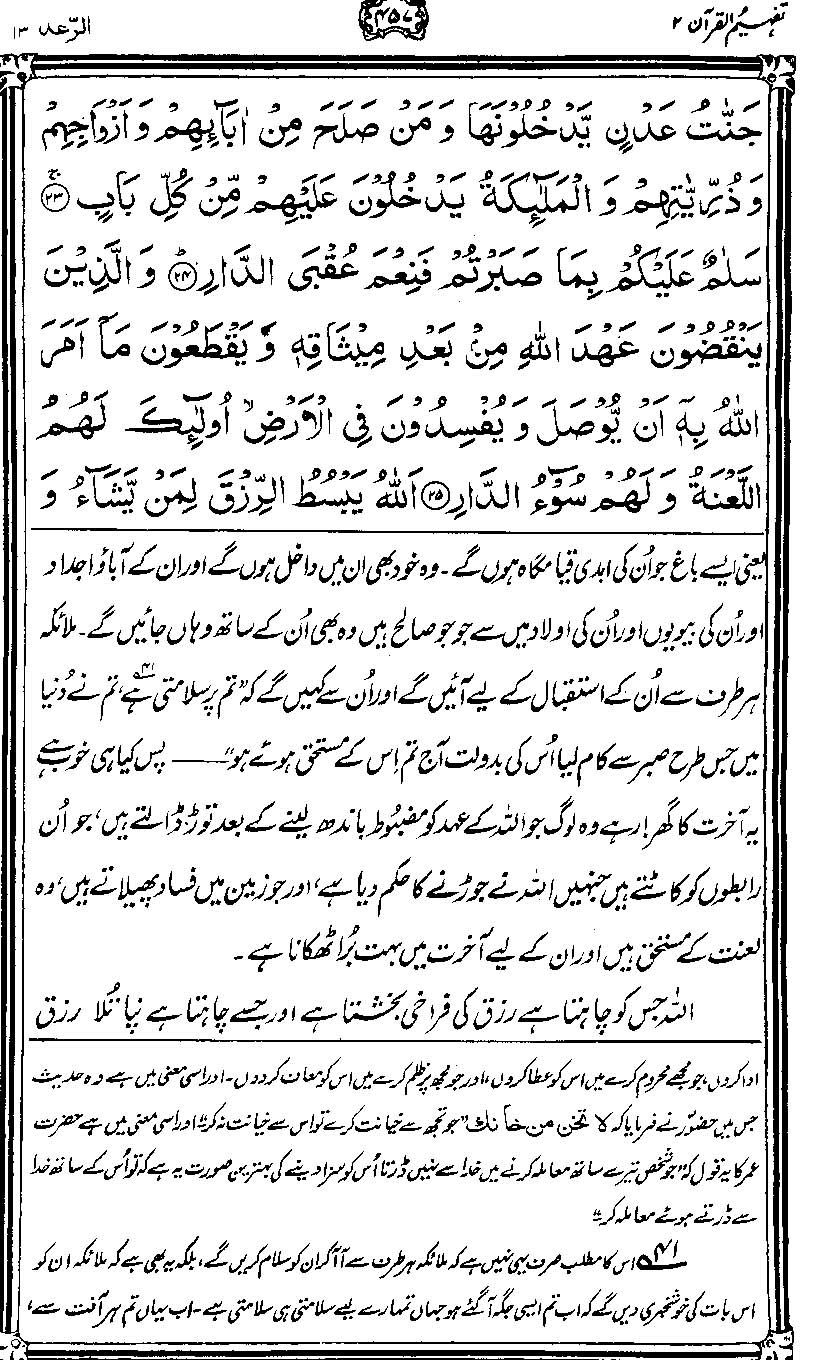 تفہیم القرآن ۲
۴۵۷
الرّعد ۱۳
جَنّٰتُ عَدْنٍ یَّدْخُلُوْنَهَا وَ مَنْ صَلَحَ مِنْ اٰبَآئِهِمْ وَ اَزْوَاجِهِمْ
وَ ذُرِّیّٰتِهِمْ وَ الْمَلٰٓئِكَةُ یَدْخُلُوْنَ عَلَیْهِمْ مِّنْ كُلِّ بَابٍ ۚ‏﴿۲۳﴾
سَلٰمٌ عَلَیْكُمْ بِمَا صَبَرْتُمْ فَنِعْمَ عُقْبَى الدَّارِ ؕ‏﴿۲۴﴾ وَ الَّذِیْنَ
یَنْقُضُوْنَ عَهْدَ اللّٰهِ مِنْۢ بَعْدِ مِیْثَاقِهٖ وَ یَقْطَعُوْنَ مَاۤ اَمَرَ
اللّٰهُ بِهٖۤ اَنْ یُّوْصَلَ وَ یُفْسِدُوْنَ فِی الْاَرْضِ ۙ اُولٰٓئِكَ لَهُمُ
اللَّعْنَةُ وَ لَهُمْ سُوْٓءُ الدَّارِ ﴿۲۵﴾ اَللّٰهُ یَبْسُطُ الرِّزْقَ لِمَنْ یَّشَآءُ وَ
یعنی ایسے باغ جو اُن کی ابدی قیام گاہ ہوں گے۔ وہ خود بھی ان میں داخل ہوں گے اور ان کے آباؤ اجداد
اور اُن کی بیویوں اور اُن کی اولاد میں سے جو جو صالح ہیں وہ بھی اُن کے ساتھ وہاں جائیں گے۔ ملائکہ
ہر طرف سے اُن کے استقبال کے لیے آئیں گے اور اُن سے کہیں گے کہ "تم پر سلامتی ہے۴۱، تم نے دُنیا
میں جس طرح صبر سے کام لیا اُس کی بدولت آج تم اِس کے مستحق ہوئے ہو" ـــــ پس کیا ہی خوب ہے
یہ آخرت کا گھر! رہے وہ لوگ جو اللہ کے عہد کو مضبُوط باندھ لینے کے بعد توڑ ڈالتے ہیں، جو اُن
رابطوں کو کاٹتے ہیں جنہیں اللہ نے جوڑنے کا حکم دیا ہے، اور جو زمین میں فساد پھیلاتے ہیں، وہ
لعنت کے مستحق ہیں اور ان کے لیے آخرت میں بہت بُرا ٹھکانا ہے۔
اللہ جس کو چاہتا ہے رزق کی فراخی بخشتا ہے اور جسے چاہتا ہے نپا تُلا رزق
ادا کروں، جو مجھے محروم کرے میں اس کو عطا کروں، اور جو مجھ پر ظلم کرے میں اس کو معاف کردوں۔ اور اسی معنی میں ہے وہ حدیث
جس میں حضورؐ نے فرمایا کہ لا تخن من خانك "جو تجھ سے خیانت کرے تو اس سے خیانت نہ کر"۔ اور اسی معنی میں ہے حضرت
عمر کا یہ قول کہ "جو شخص تیرے ساتھ معاملہ کرنے میں خدا سے نہیں ڈرتا اُس کو سزا دینے کی بہترین صورت یہ ہے کہ تو اُس کے ساتھ خدا
سے ڈرتے ہوئے معاملہ کر"۔
۴۱ اس کا مطلب صرف یہی نہیں ہے کہ ملائکہ ہر طرف سے آ آ کر ان کو سلام کریں گے، بلکہ یہ بھی ہے کہ ملائکہ ان کو
اس بات کی خوشخبری دیں گے کہ اب تم ایسی جگہ آ گئے ہو جہاں تمہارے لیے سلامتی ہی سلامتی ہے۔ اب یہاں تم ہر آفت سے،